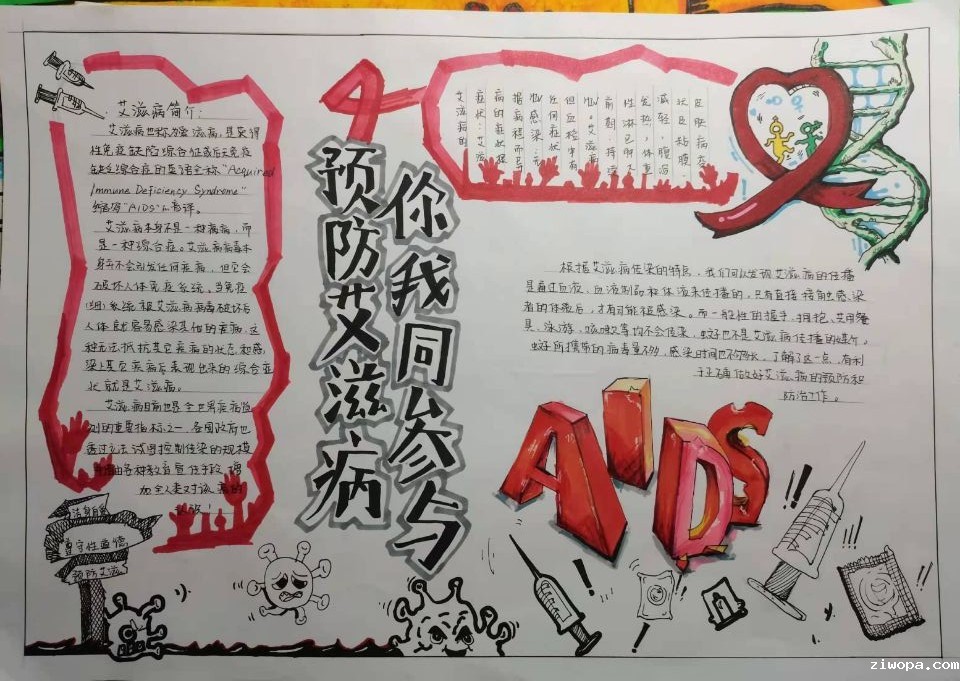 艾滋病简介:
艾滋病也称爱滋病,是获得
性免疫缺陷综合征或后天免疫
缺乏综合症的英语全称"Acquired
Immune Deficiency Syndrome"
缩写"AIDS"的音译。
艾滋病本身不是一种疾病,而
是一种综合症。艾滋病病毒本
身并不会引发任何疾病,但它会
破坏人体免疫系统。当免疫
系统被艾滋病病毒破坏后
人体就容易感染其他的疾病,这
种无法抵抗其它疾病的状态和感
染上其它疾病后表现出来的综合症
状就是艾滋病。
艾滋病目前世界
的重要指标之一,各国政府也
透过立法试图控制传染的规模
各种教育宣传手段,增
加全人类对该病的
洁身自爱
遵守性道德
预防艾滋
预防艾滋病
你我同参与
艾滋病的
症状:艾滋
病的症状根
据病程而
感染,无
任何症状
但血检中有
艾滋病
前期:持续
性淋巴肿大
发热,体重
减轻,腹泻
状且粘膜
皮肤病变
根据艾滋病传染的特点,我们可以发现艾滋病的传播
是通过血液,血液制品和体液来传播的,只有直接接触了感染
者的体液后,才有可能被感染。而一般性的握手,拥抱,共用餐
具,泳游,咳嗽等均不会传染,蚊子也不是艾滋病传播的媒介。
蚊子所携带的病毒量不够,感染时间也不够长,了解了这一点,有利
于正确做好艾滋病的预防和
防治工作。
AIDS
ziwopa.com